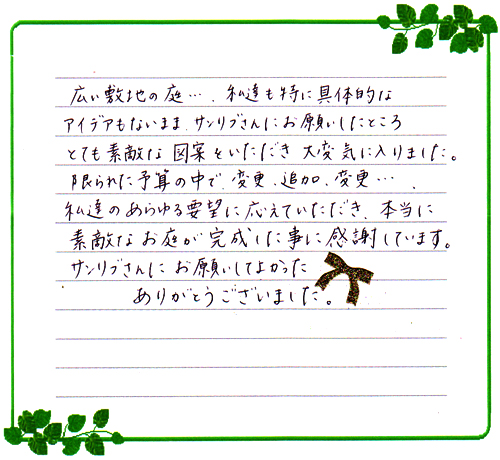 広い敷地の庭…、私達も特に具体的な
アイデアもないまま、サンリブさんにお願いしたところ
とても素敵な図案をいただき大変気に入りました。
限られた予算の中で、変更、追加、変更…、
私達のあらゆる要望に応えていただき、本当に
素敵なお庭が完成した事に感謝しています。
サンリブさんにお願いしてよかった
ありがとうございました。